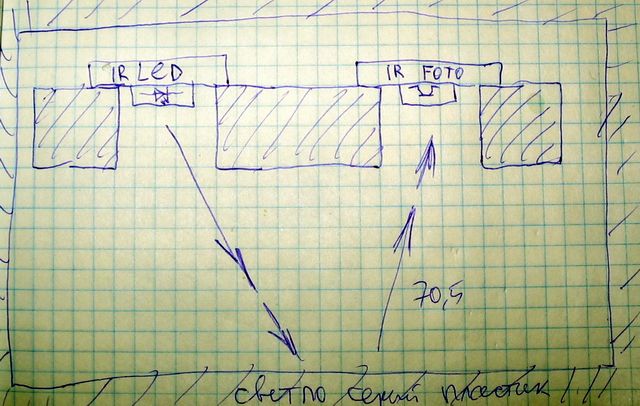 IR LED
IR FOTO
70,5
светло серый пластик